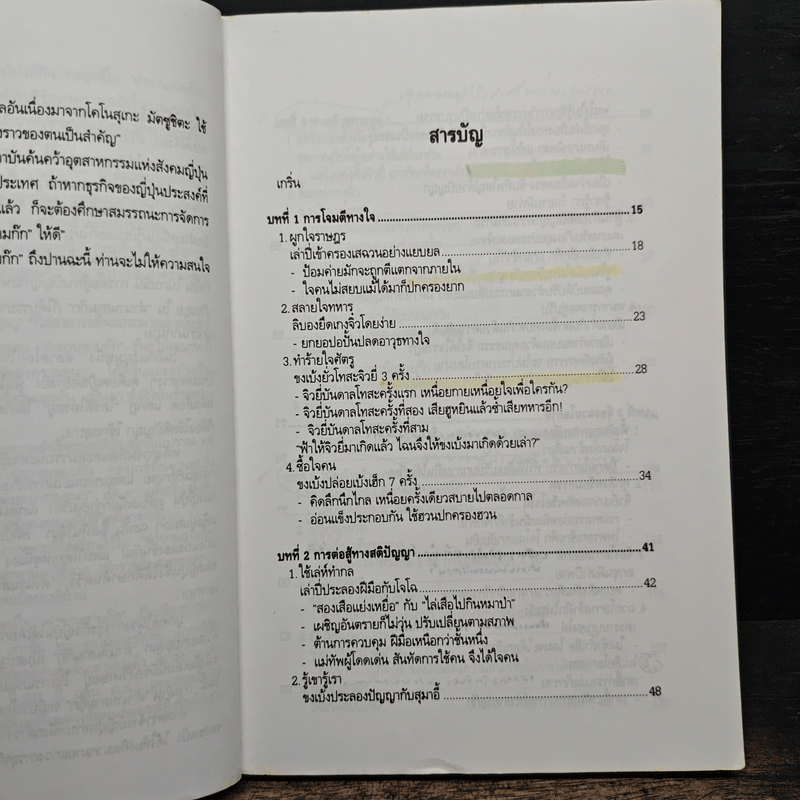 ลอันเนื่องมาจากโคโนสุเกะ มัตซูชิตะ ใช้
งราวของตนเป็นสำคัญ"
าบันค้นคว้าอุตสาหกรรมแห่งสังคมญี่ปุ่น
ประเทศ ถ้าหากธุรกิจของญี่ปุ่นประสงค์ที่
แล้ว ก็จะต้องศึกษาสมรรถนะการจัดการ
ามก๊ก" ให้ดี"
มก๊ก" ถึงปานฉะนี้ ท่านจะไม่ให้ความสนใจ
สารบัญ
เกริ่น
บทที่ 1 การโจมตีทางใจ 15
1. ผูกใจราษฎร
เล่าปี่เข้าครองเสฉวนอย่างแยบยล 18
- ป้อมค่ายมักจะถูกตีแตกจากภายใน
- ใจคนไม่สยบแม้ได้มาก็ปกครองยาก
2. สลายใจทหาร
ลิบองยึดเกงจิ๋วโดยง่าย 23
- ยกยอปอปั้นปลดอาวุธทางใจ
3. ทำร้ายใจศัตรู
ขงเบ้งยั่วโทสะจิวยี่ 3 ครั้ง 28
- จิวยี่บันดาลโทสะครั้งแรก เหนื่อยกายเหนื่อยใจเพื่อใครกัน?
- จิวยี่บันดาลโทสะครั้งที่สอง เสียฮูหยินแล้วซ้ำเสียทหารอีก!
- จิวยี่บันดาลโทสะครั้งที่สาม
"ฟ้าให้จิวยี่มาเกิดแล้ว ไฉนจึงให้ขงเบ้งมาเกิดด้วยเล่า?"
4. ซื้อใจคน
ขงเบ้งปล่อยเบ้งเฮ็ก 7 ครั้ง 34
- คิดลึกนึกไกล เหนื่อยครั้งเดียวสบายไปตลอดกาล
- อ่อนแข็งประกอบกัน ใช้ฮวนปกครองฮวน
บทที่ 2 การต่อสู้ทางสติปัญญา 41
1. ใช้เล่ห์ทำกล
เล่าปี่ประลองฝีมือกับโจโฉ 42
- "สองเสือแย่งเหยื่อ" กับ "ไล่เสือไปกินหมาป่า"
- เผชิญอันตรายก็ไม่วุ่น ปรับเปลี่ยนตามสภาพ
- ต้านการควบคุม ฝีมือเหนือกว่าชั้นหนึ่ง
- แม่ทัพผู้โดดเด่น สันทัดการใช้คน จึงได้ใจคน
2. รู้เขารู้เรา
ขงเบ้งประลองปัญญากับสุมาอี้ 48